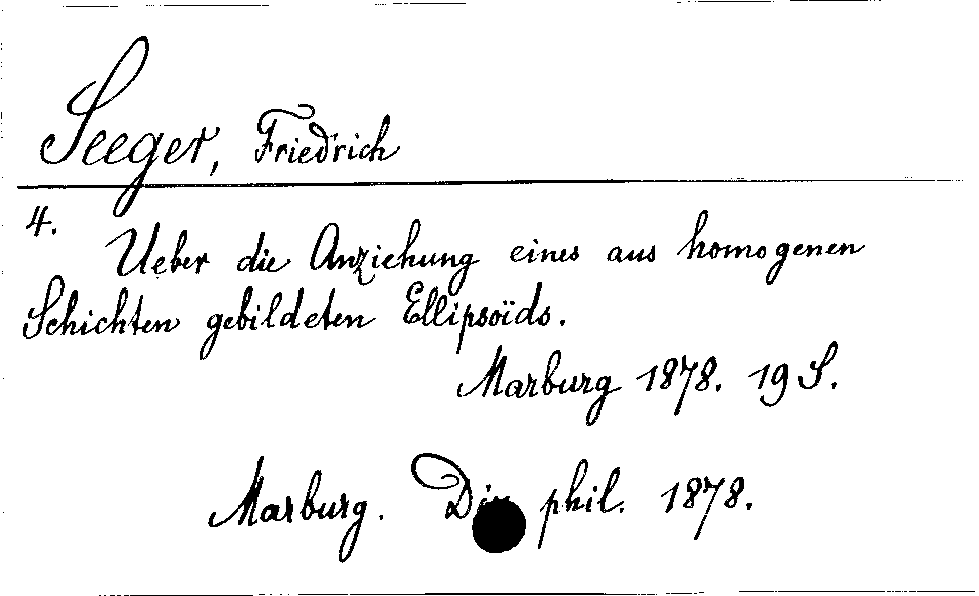 Seeger, Friedrich
4.
Ueber die Anziehung eines aus homogenen
Schichten gebildeten Ellipsoïds.
Marburg 1878. 19 S.
Marburg. phil. 1878.